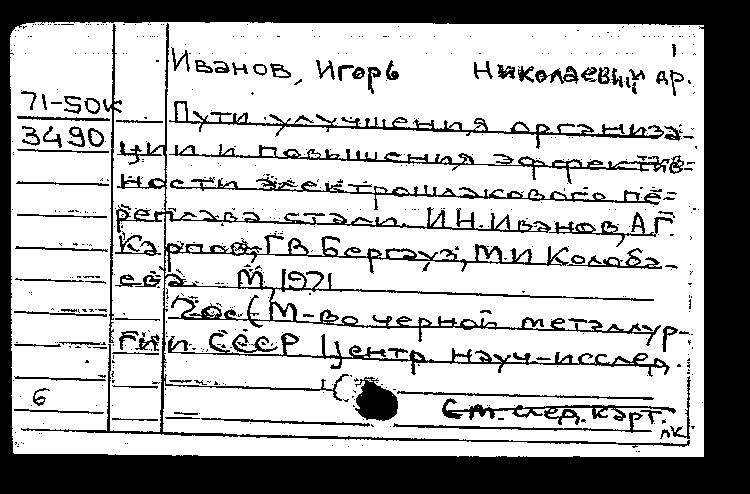 1
Иванов, Игорь Николаевич и др.
71-50к
3490
Пути улучшения организа-
ции и повышения эффектив-
ности электрошлакового пе-
реплава стали. И.Н.Иванов, А.Г.
Карпов, Г.В. Бергауз, М.И Колоба-
ева. М, 1971
20с (М-во черной металлур-
гии СССР Центр науч-исслед.
6
См. след. карт.
лк